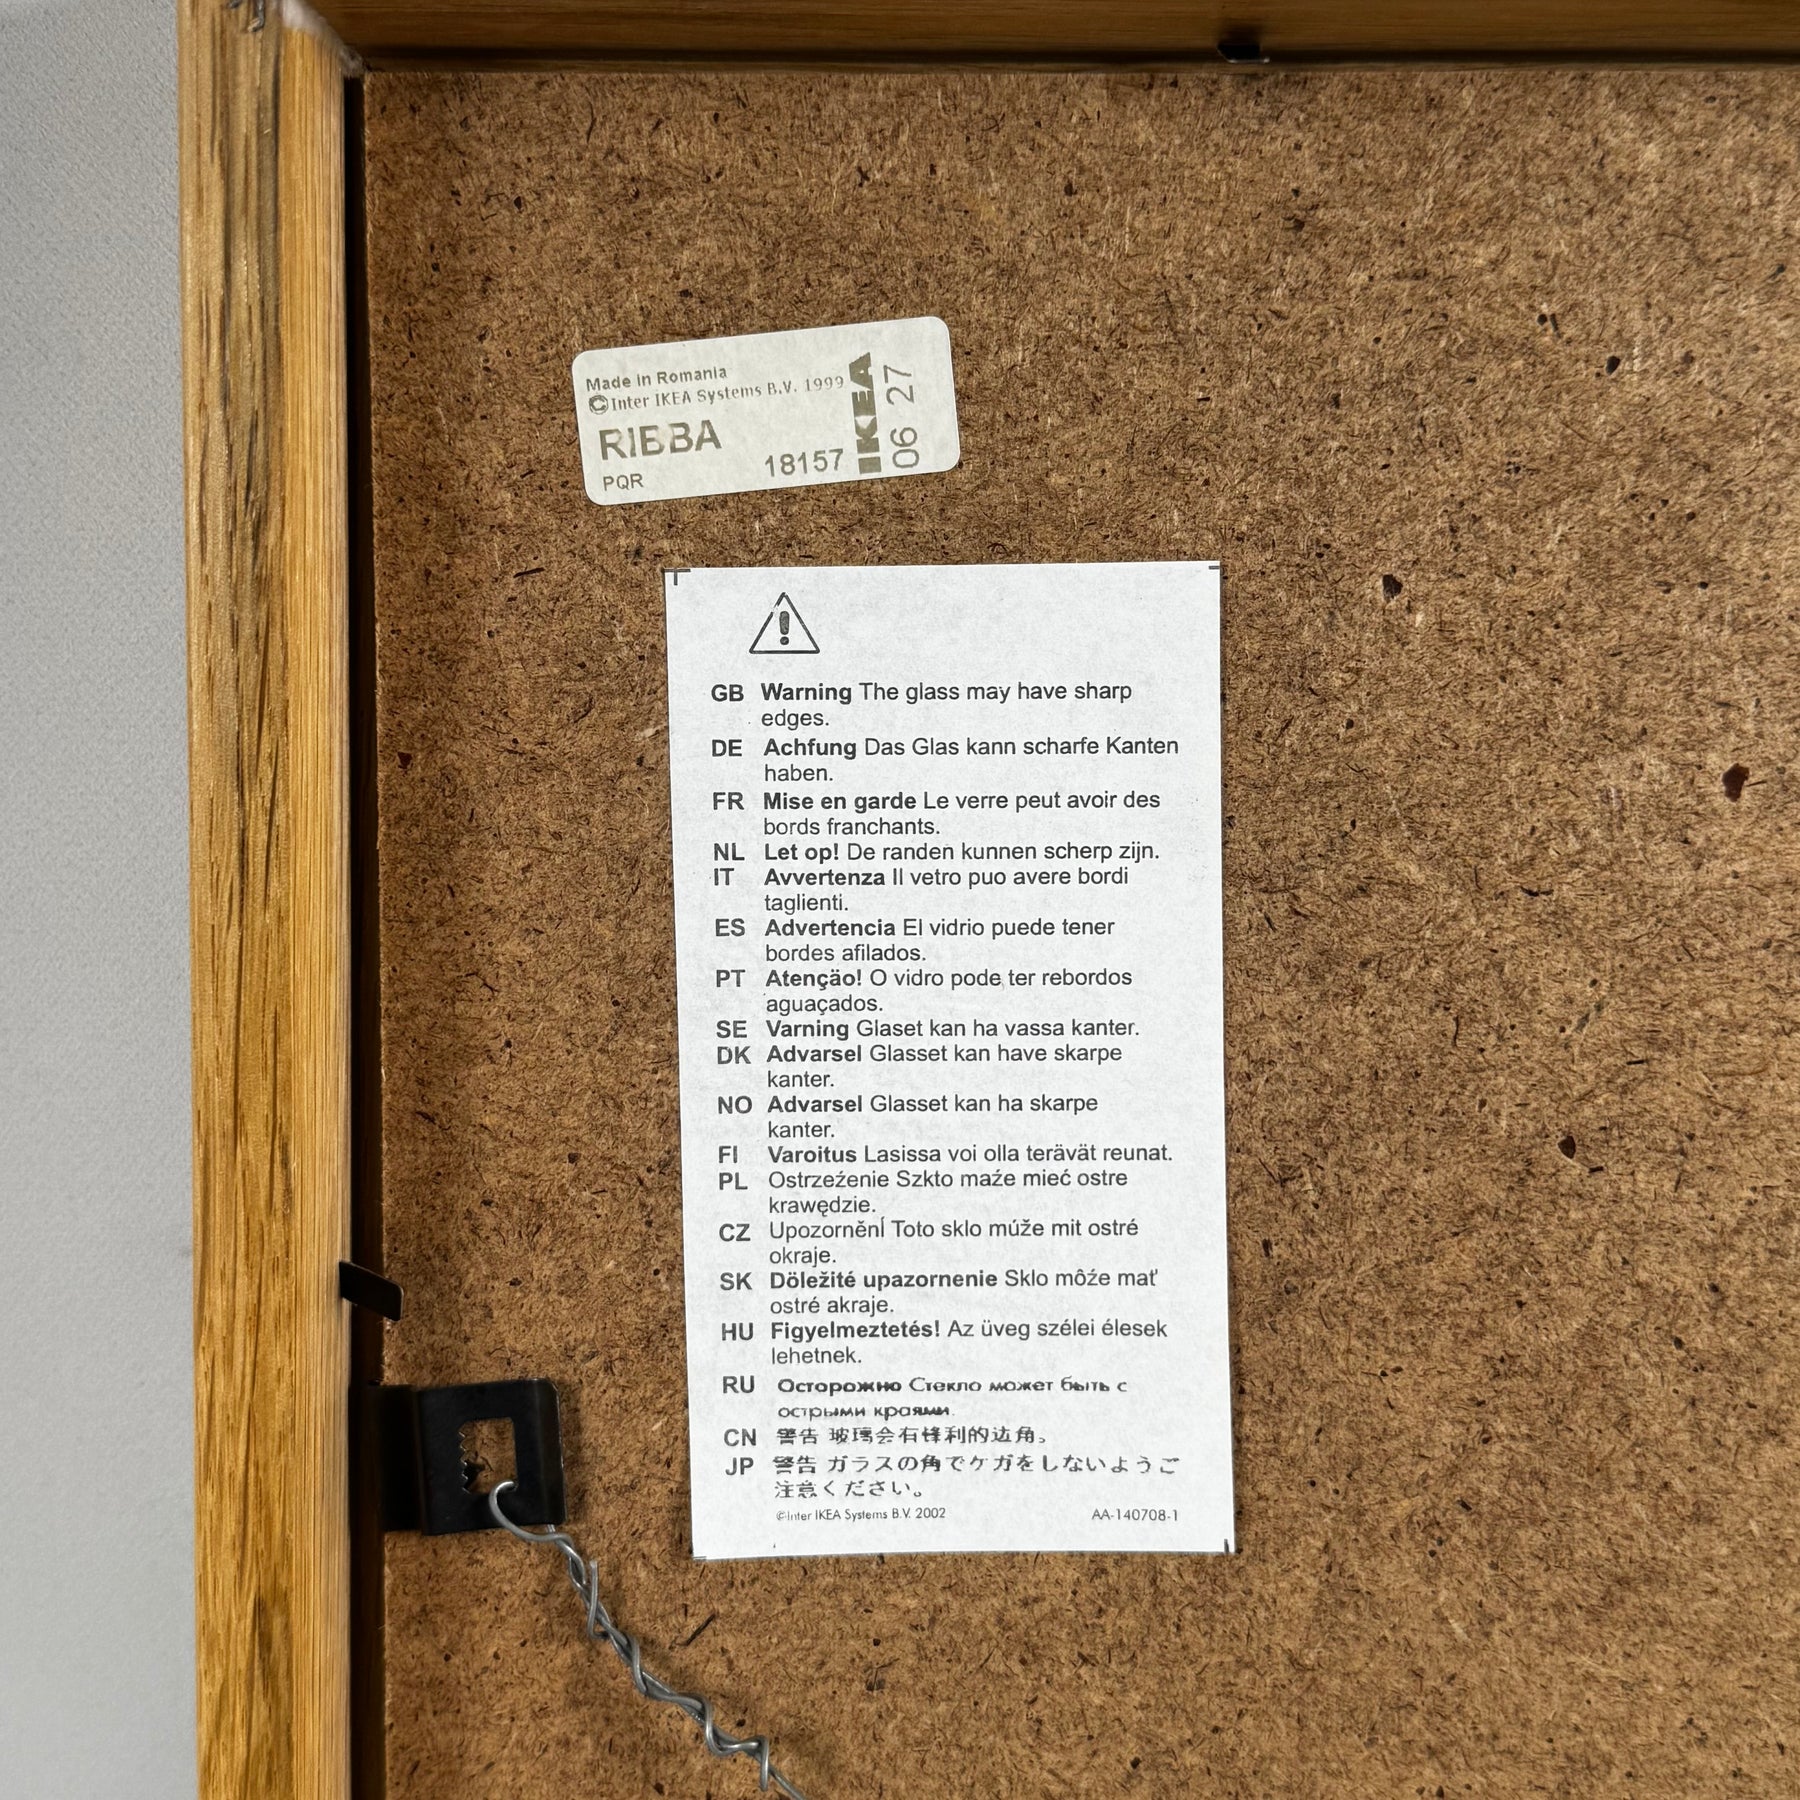 Made in Romania
©Inter IKEA Systems B.V. 1999
RIBBA
18157
PQR
IKEA
06 27
GB Warning The glass may have sharp
edges.
DE Achfung Das Glas kann scharfe Kanten
haben.
FR Mise en garde Le verre peut avoir des
bords franchants.
NL Let op! De randen kunnen scherp zijn.
IT Avvertenza Il vetro puo avere bordi
taglienti.
ES Advertencia El vidrio puede tener
bordes afilados.
PT Atençäo! O vidro pode ter rebordos
aguaçados.
SE Varning Glaset kan ha vassa kanter.
DK Advarsel Glasset kan have skarpe
kanter.
NO Advarsel Glasset kan ha skarpe
kanter.
FI Varoitus Lasissa voi olla terävät reunat.
PL Ostrzeźenie Szkto maźe mieć ostre
krawędzie.
CZ Upozorněnĺ Toto sklo múže mit ostré
okraje.
SK Döležité upazornenie Sklo môźe mať
ostré akraje.
HU Figyelmeztetés! Az üveg szélei élesek
lehetnek.
RU Осторожно Стекло может быть с
острыми краями.
CN 警告 玻璃会有锋利的边角。
JP 警告 ガラスの角でケガをしないようご
注意ください。
©Inter IKEA Systems B.V. 2002
AA-140708-1